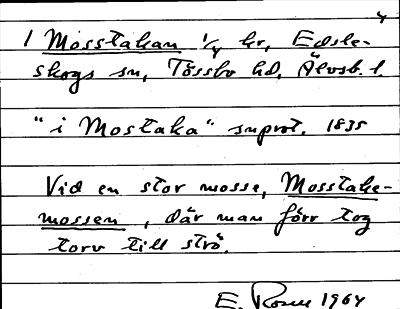 4
1 Mosstakan 1/4 hr, Edsle-
skogs sn, Tössbo hd, Älvsb. l.
"i Mostaka" snprot. 1835
Vid en stor mosse, Mosstake-
mossen, där man förr tog
torv till strö.
E. Rosen 1964